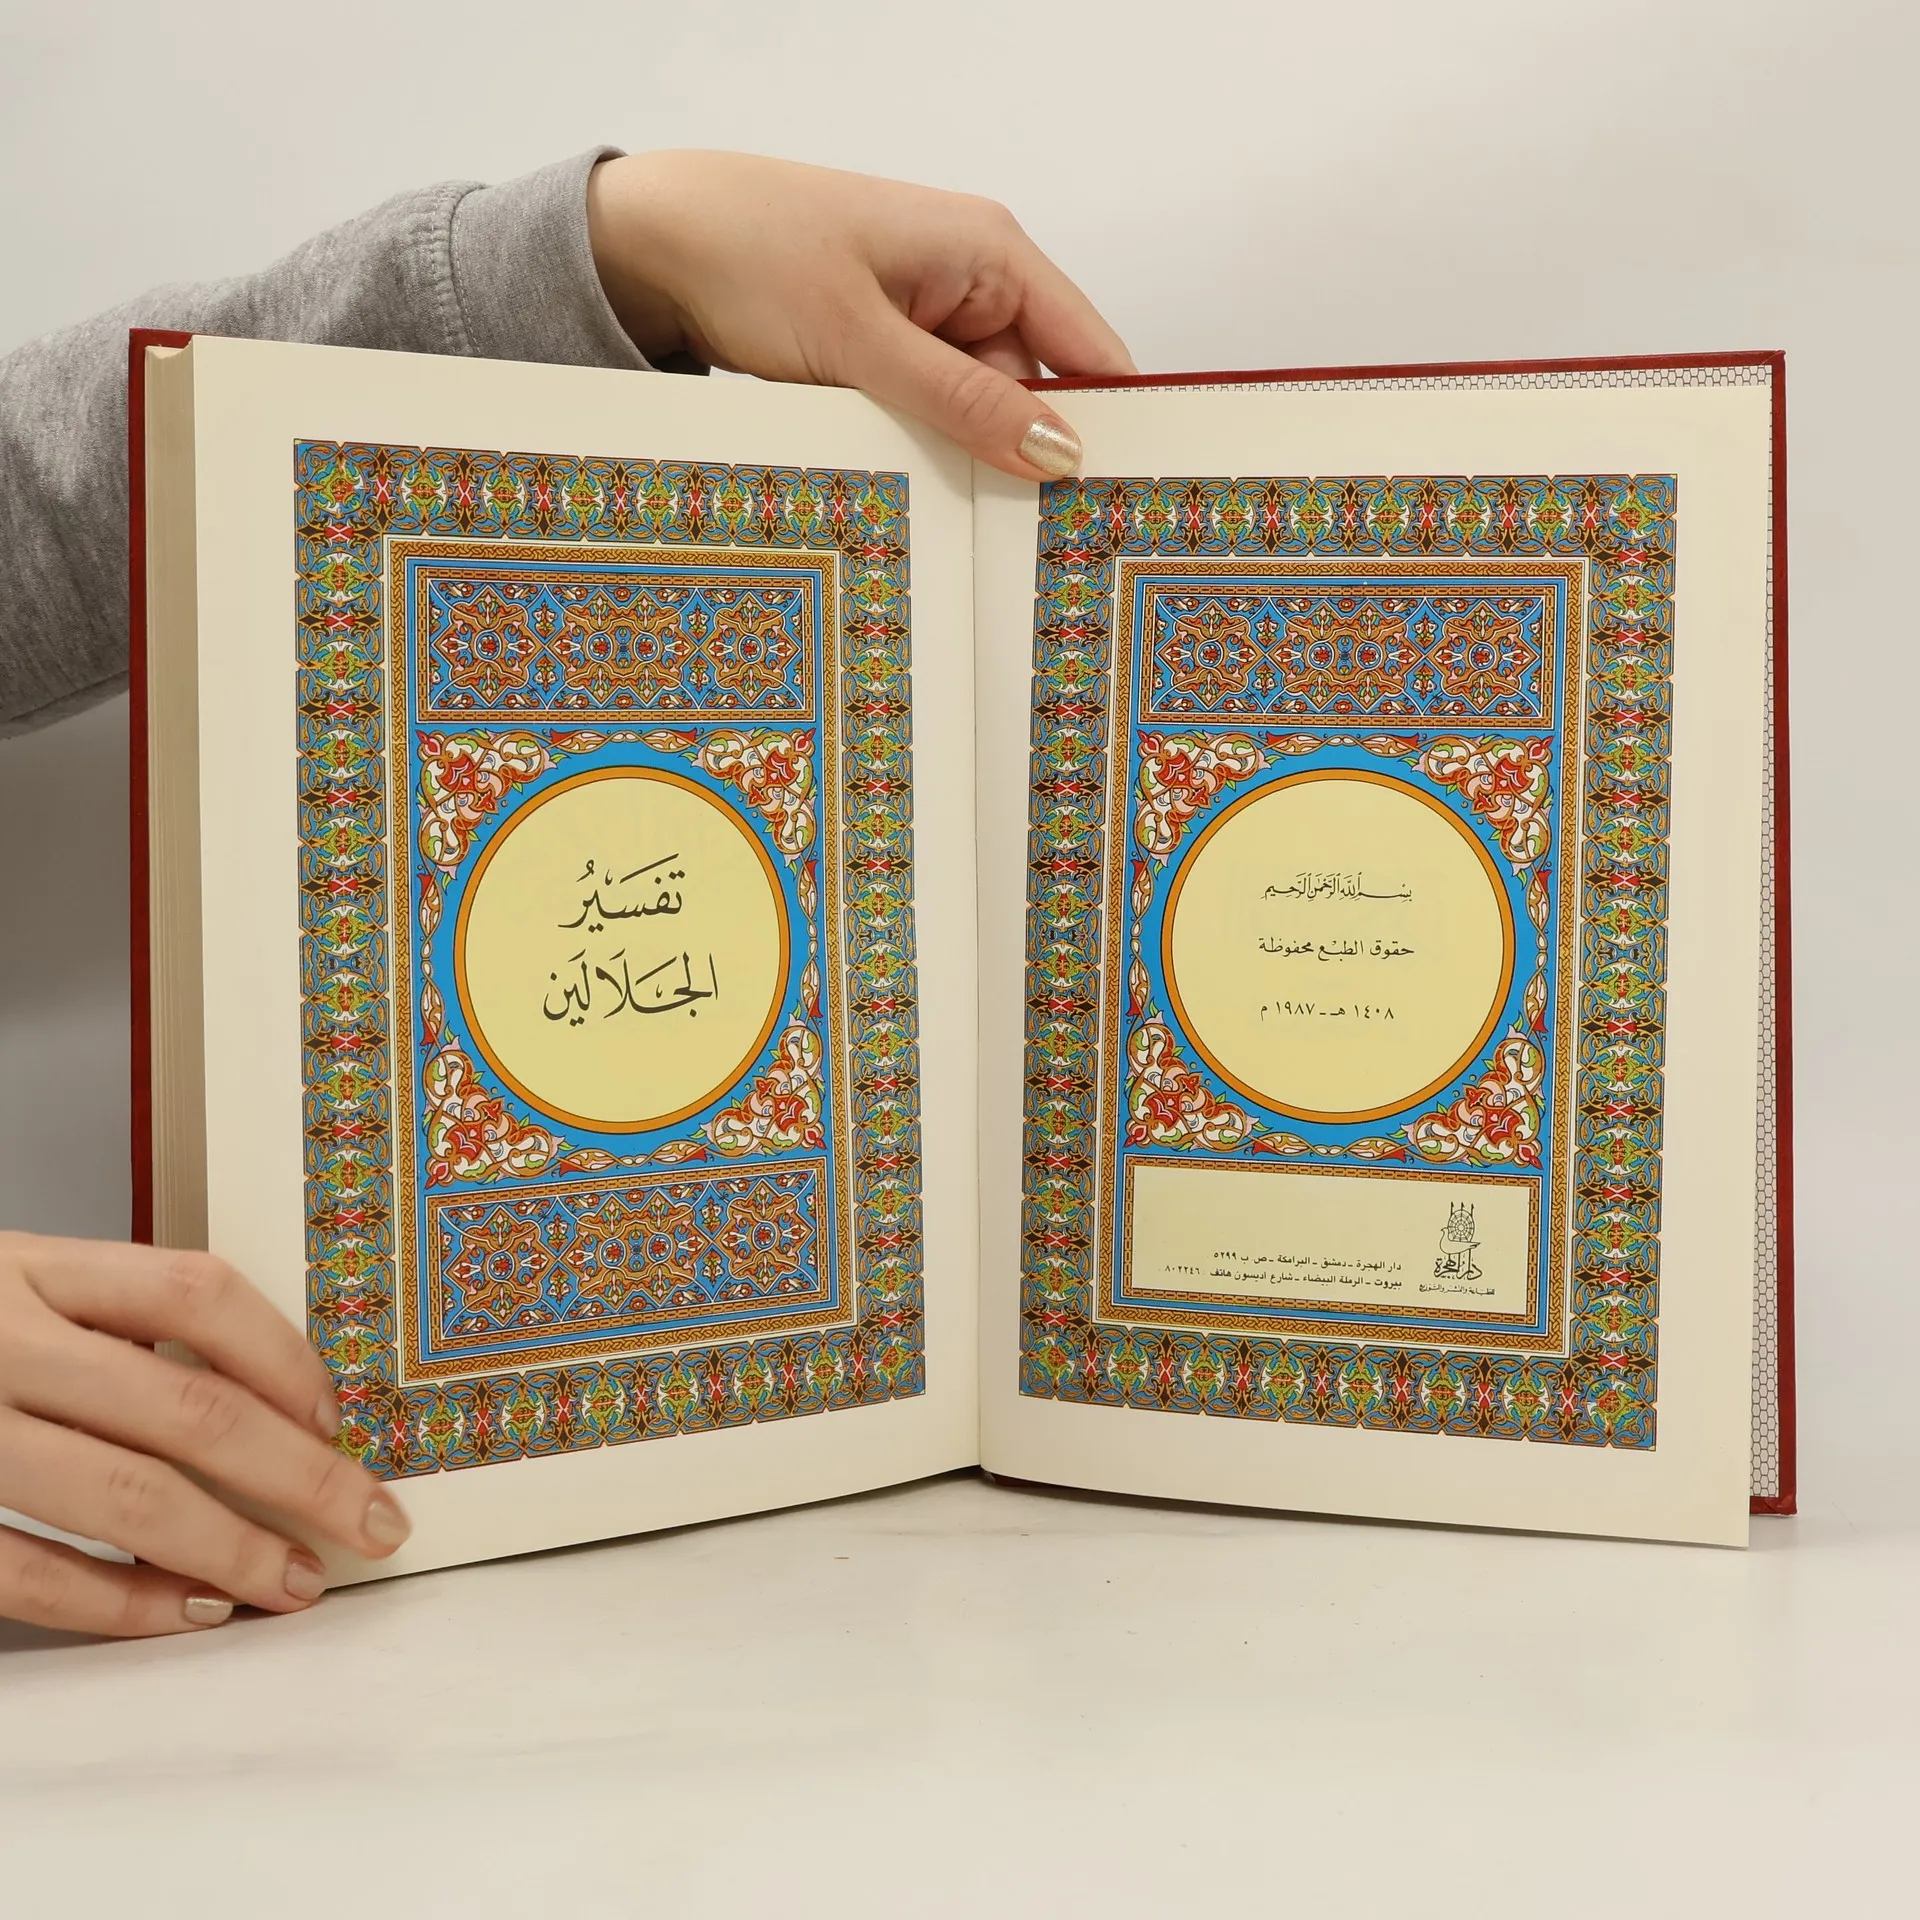 بِسْمِ اللَّهِ الرَّحْمَٰنِ الرَّحِيمِ
حقوق الطبع محفوظة
١٤٠٨ هـ - ١٩٨٧ م
دار الهجرة
للطباعة والنشر والتوزيع
دار الهجرة - دمشق - البرامكة - ص ب ٥٢٩٩
بيروت - الرملة البيضاء - شارع اديسون هاتف ٨٠٢٢٤٦
تفسَيرُ
الجَلَالَين